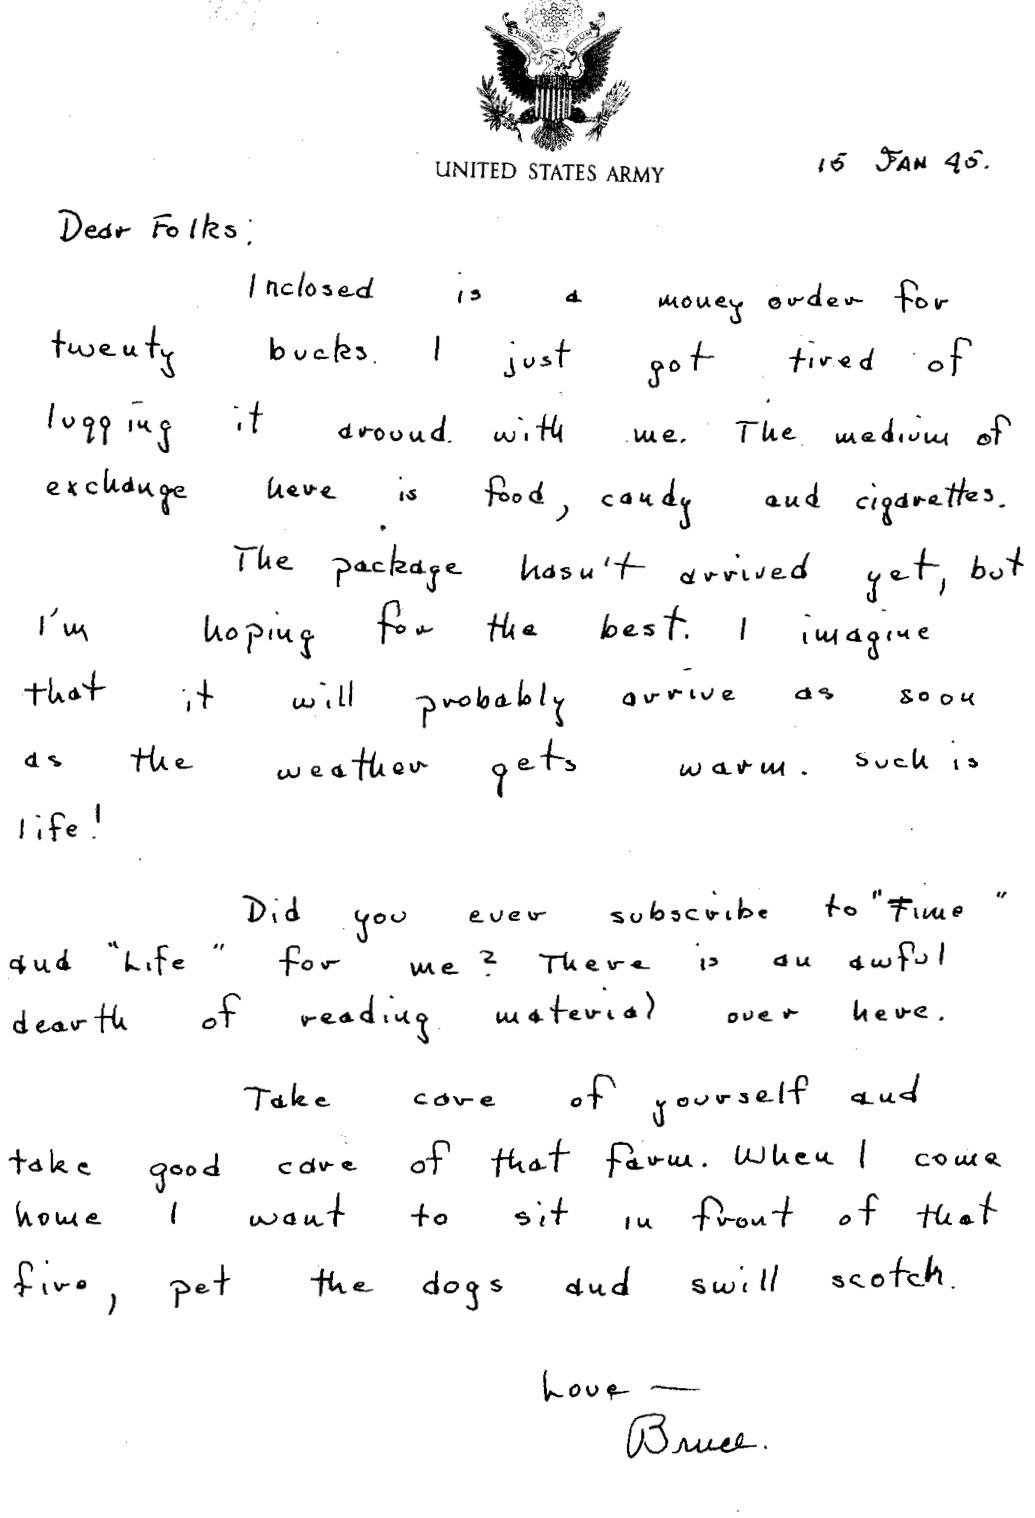 E PLURIBUS UNUM
UNITED STATES ARMY
15 JAN 45.
Dear Folks;
Inclosed is a money order for
twenty bucks. I just got tired of
lugging it around with me. The medium of
exchange here is food, candy and cigarettes.
The package hasn't arrived yet, but
I'm hoping for the best. I imagine
that it will probably arrive as soon
as the weather gets warm. Such is
life!
Did you ever subscribe to "Time"
and "Life" for me? There is an awful
dearth of reading material over here.
Take care of yourself and
take good care of that farm. When I come
home I want to sit in front of that
fire, pet the dogs and swill scotch.
Love —
Bruce.